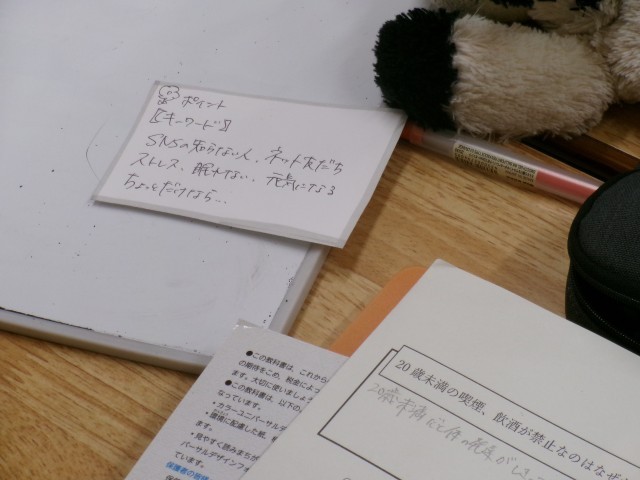 ポイント
【キーワード】
SNSの知らない人、ネット友だち
ストレス、眠れない、元気になる
ちょっとだけなら…
●この教科書は、これから
の期待をこめ、税金によっ
ます。大切に使いましょ
●この教科書は、以下の
なっています。
・カラーユニバーサルデ
・環境に配慮した紙、
ます。
・見やすく読みまちが
バーサルデザインフォ
ています。
保護者の皆様
20歳未満の喫煙、飲酒が禁止なのはなぜ
20歳未満だと体の成長が